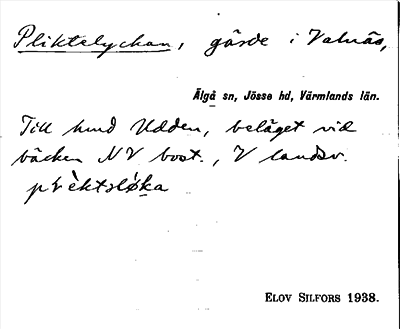 Pliktelyckan, gärde i Valnäs,
Älgå sn, Jösse hd, Värmlands län.
Till hmd Udden, beläget vid
bäcken NV bost., V landsv.
plèktsløka
ELOV SILFORS 1938.